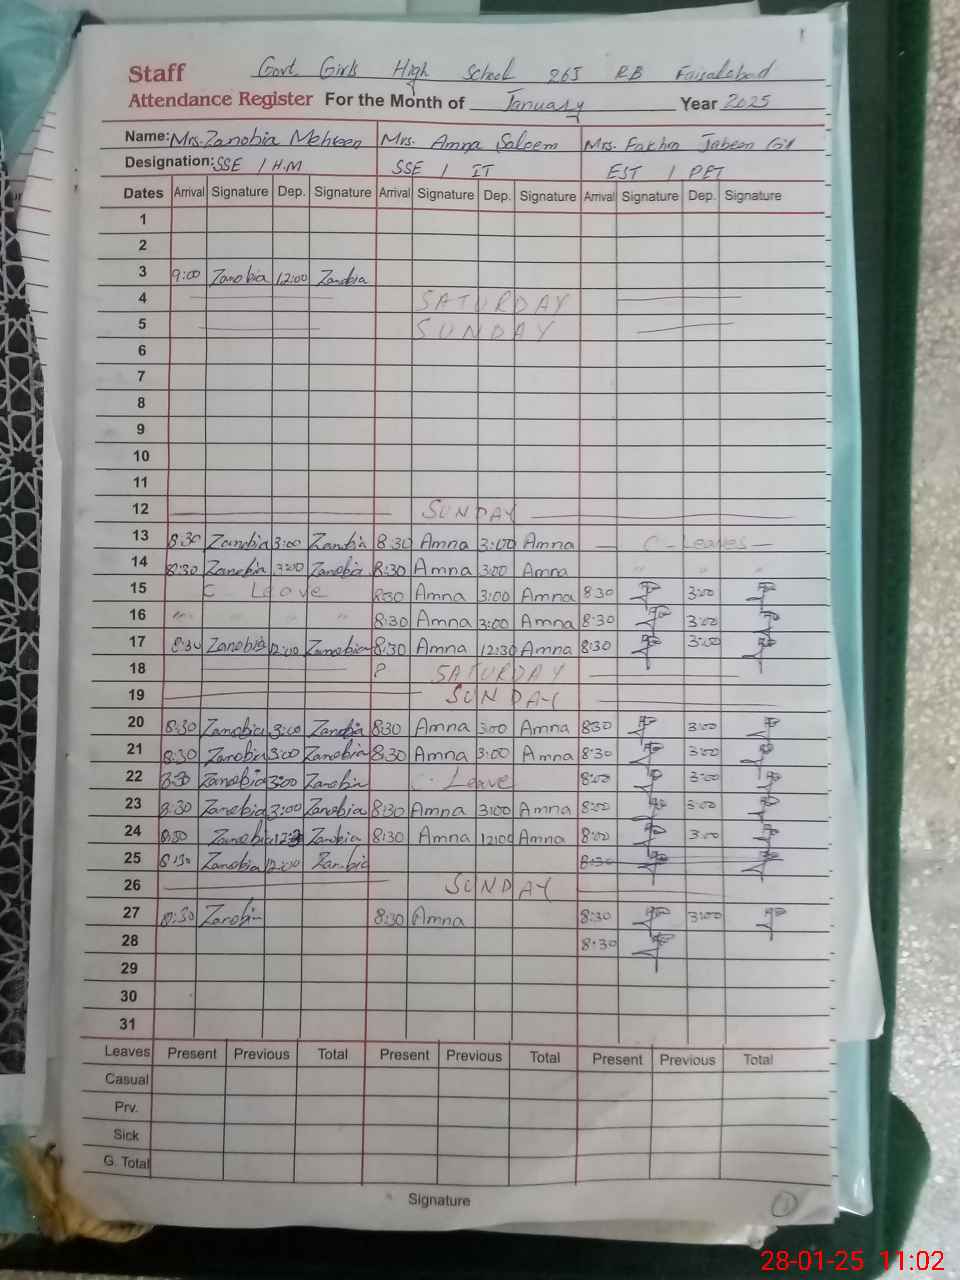 Staff Govt Girls High School 265 RB Faisalabad
Attendance Register For the Month of January Year 2025
Name: Mrs. Zanobia Mehreen Mrs. Amna Saleem Mrs. Fakhra Jabeen Gil
Designation: SSE / H.M SSE / IT EST / PET
Dates Arrival Signature Dep. Signature Arrival Signature Dep. Signature Arrival Signature Dep. Signature
1
2
3 9:00 Zanobia 12:00 Zanobia
4 SATURDAY
5 SUNDAY
6
7
8
9
10
11
12 SUNDAY
13 8:30 Zanobia 3:00 Zanobia 8:30 Amna 3:00 Amna C-Leaves
14 8:30 Zanobia 3:00 Zanobia 8:30 Amna 3:00 Amna " " "
15 C Leave 8:30 Amna 3:00 Amna 8:30 3:00
16 " " " 8:30 Amna 3:00 Amna 8:30 3:00
17 8:30 Zanobia 12:00 Zanobia 8:30 Amna 12:30 Amna 8:30 3:00
18 8 SATURDAY
19 SUNDAY
20 8:30 Zanobia 3:00 Zanobia 8:30 Amna 3:00 Amna 8:30 3:00
21 8:30 Zanobia 3:00 Zanobia 8:30 Amna 3:00 Amna 8:30 3:00
22 8:30 Zanobia 3:00 Zanobia C. Leave 8:00 3:00
23 8:30 Zanobia 3:00 Zanobia 8:30 Amna 3:00 Amna 8:00 3:00
24 8:30 Zanobia Zanobia 8:30 Amna 12:00 Amna 8:00 3:00
25 8:30 Zanobia 12:00 Zanobia 8:30
26 SUNDAY
27 8:30 Zanobi 8:30 Amna 8:30 3:00
28 8:30
29
30
31
Leaves Present Previous Total Present Previous Total Present Previous Total
Casual
Prv.
Sick
G. Total
Signature
1
28-01-25 11:02